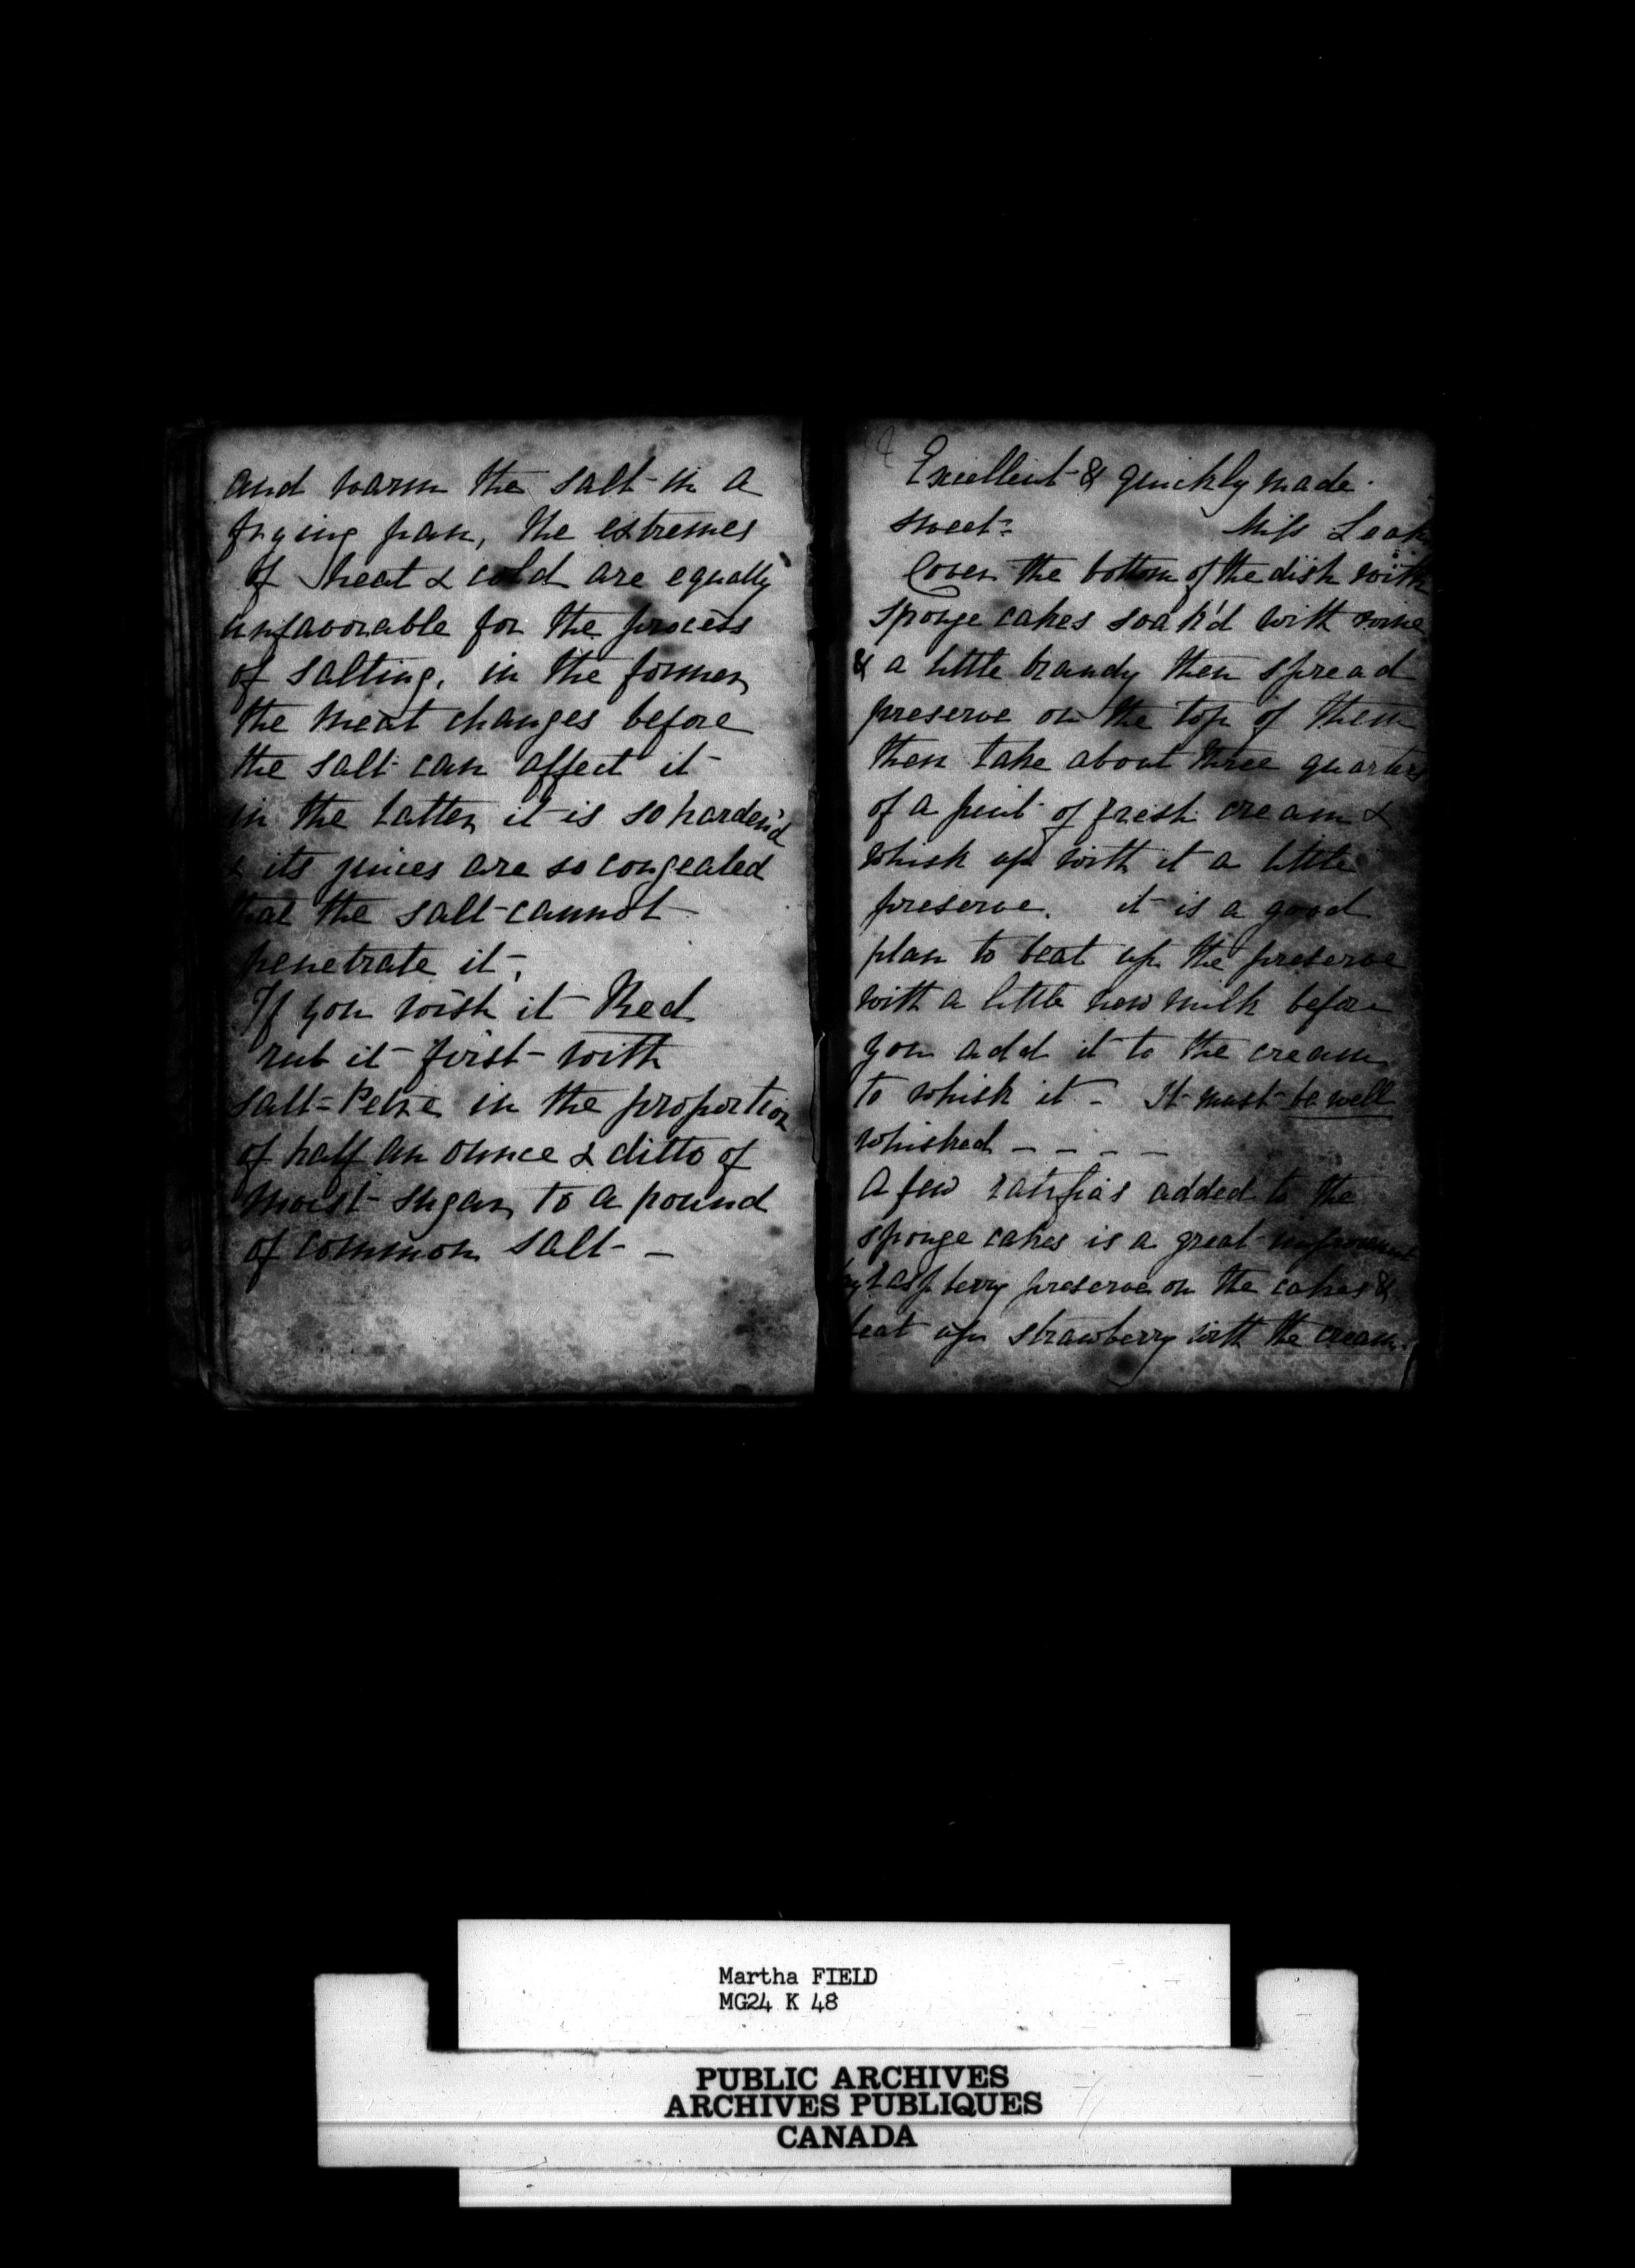 and warm the salt in a
frying pan, the extremes
of heat & cold are equally
unfavorable for the process
of salting. in the former
the meat changes before
the salt can affect it
in the latter it is so harden'd
& its juices are so congealed
that the salt cannot
penetrate it,
If you wish it Red
rub it first with
salt=Petre in the proportion
of half an ounce & ditto of
moist sugar to a pound
of common salt -
Excellent & quickly made
sweet: Miss Leak
Cover the bottom of the dish with
sponge cakes soak'd with wine
& a little brandy then spread
preserve on the top of them
then take about three quarters
of a pint of fresh cream &
whisk up with it a little
preserve. it is a good
plan to beat up the preserve
with a little new milk before
you add it to the cream
to whisk it - It must be well
whisked - - - -
A few ratifias added to the
sponge cakes is a great improvement
raspberry preserve on the cakes &
beat up strawberry with the cream.
Martha FIELD
MG24 K 48
PUBLIC ARCHIVES
ARCHIVES PUBLIQUES
CANADA